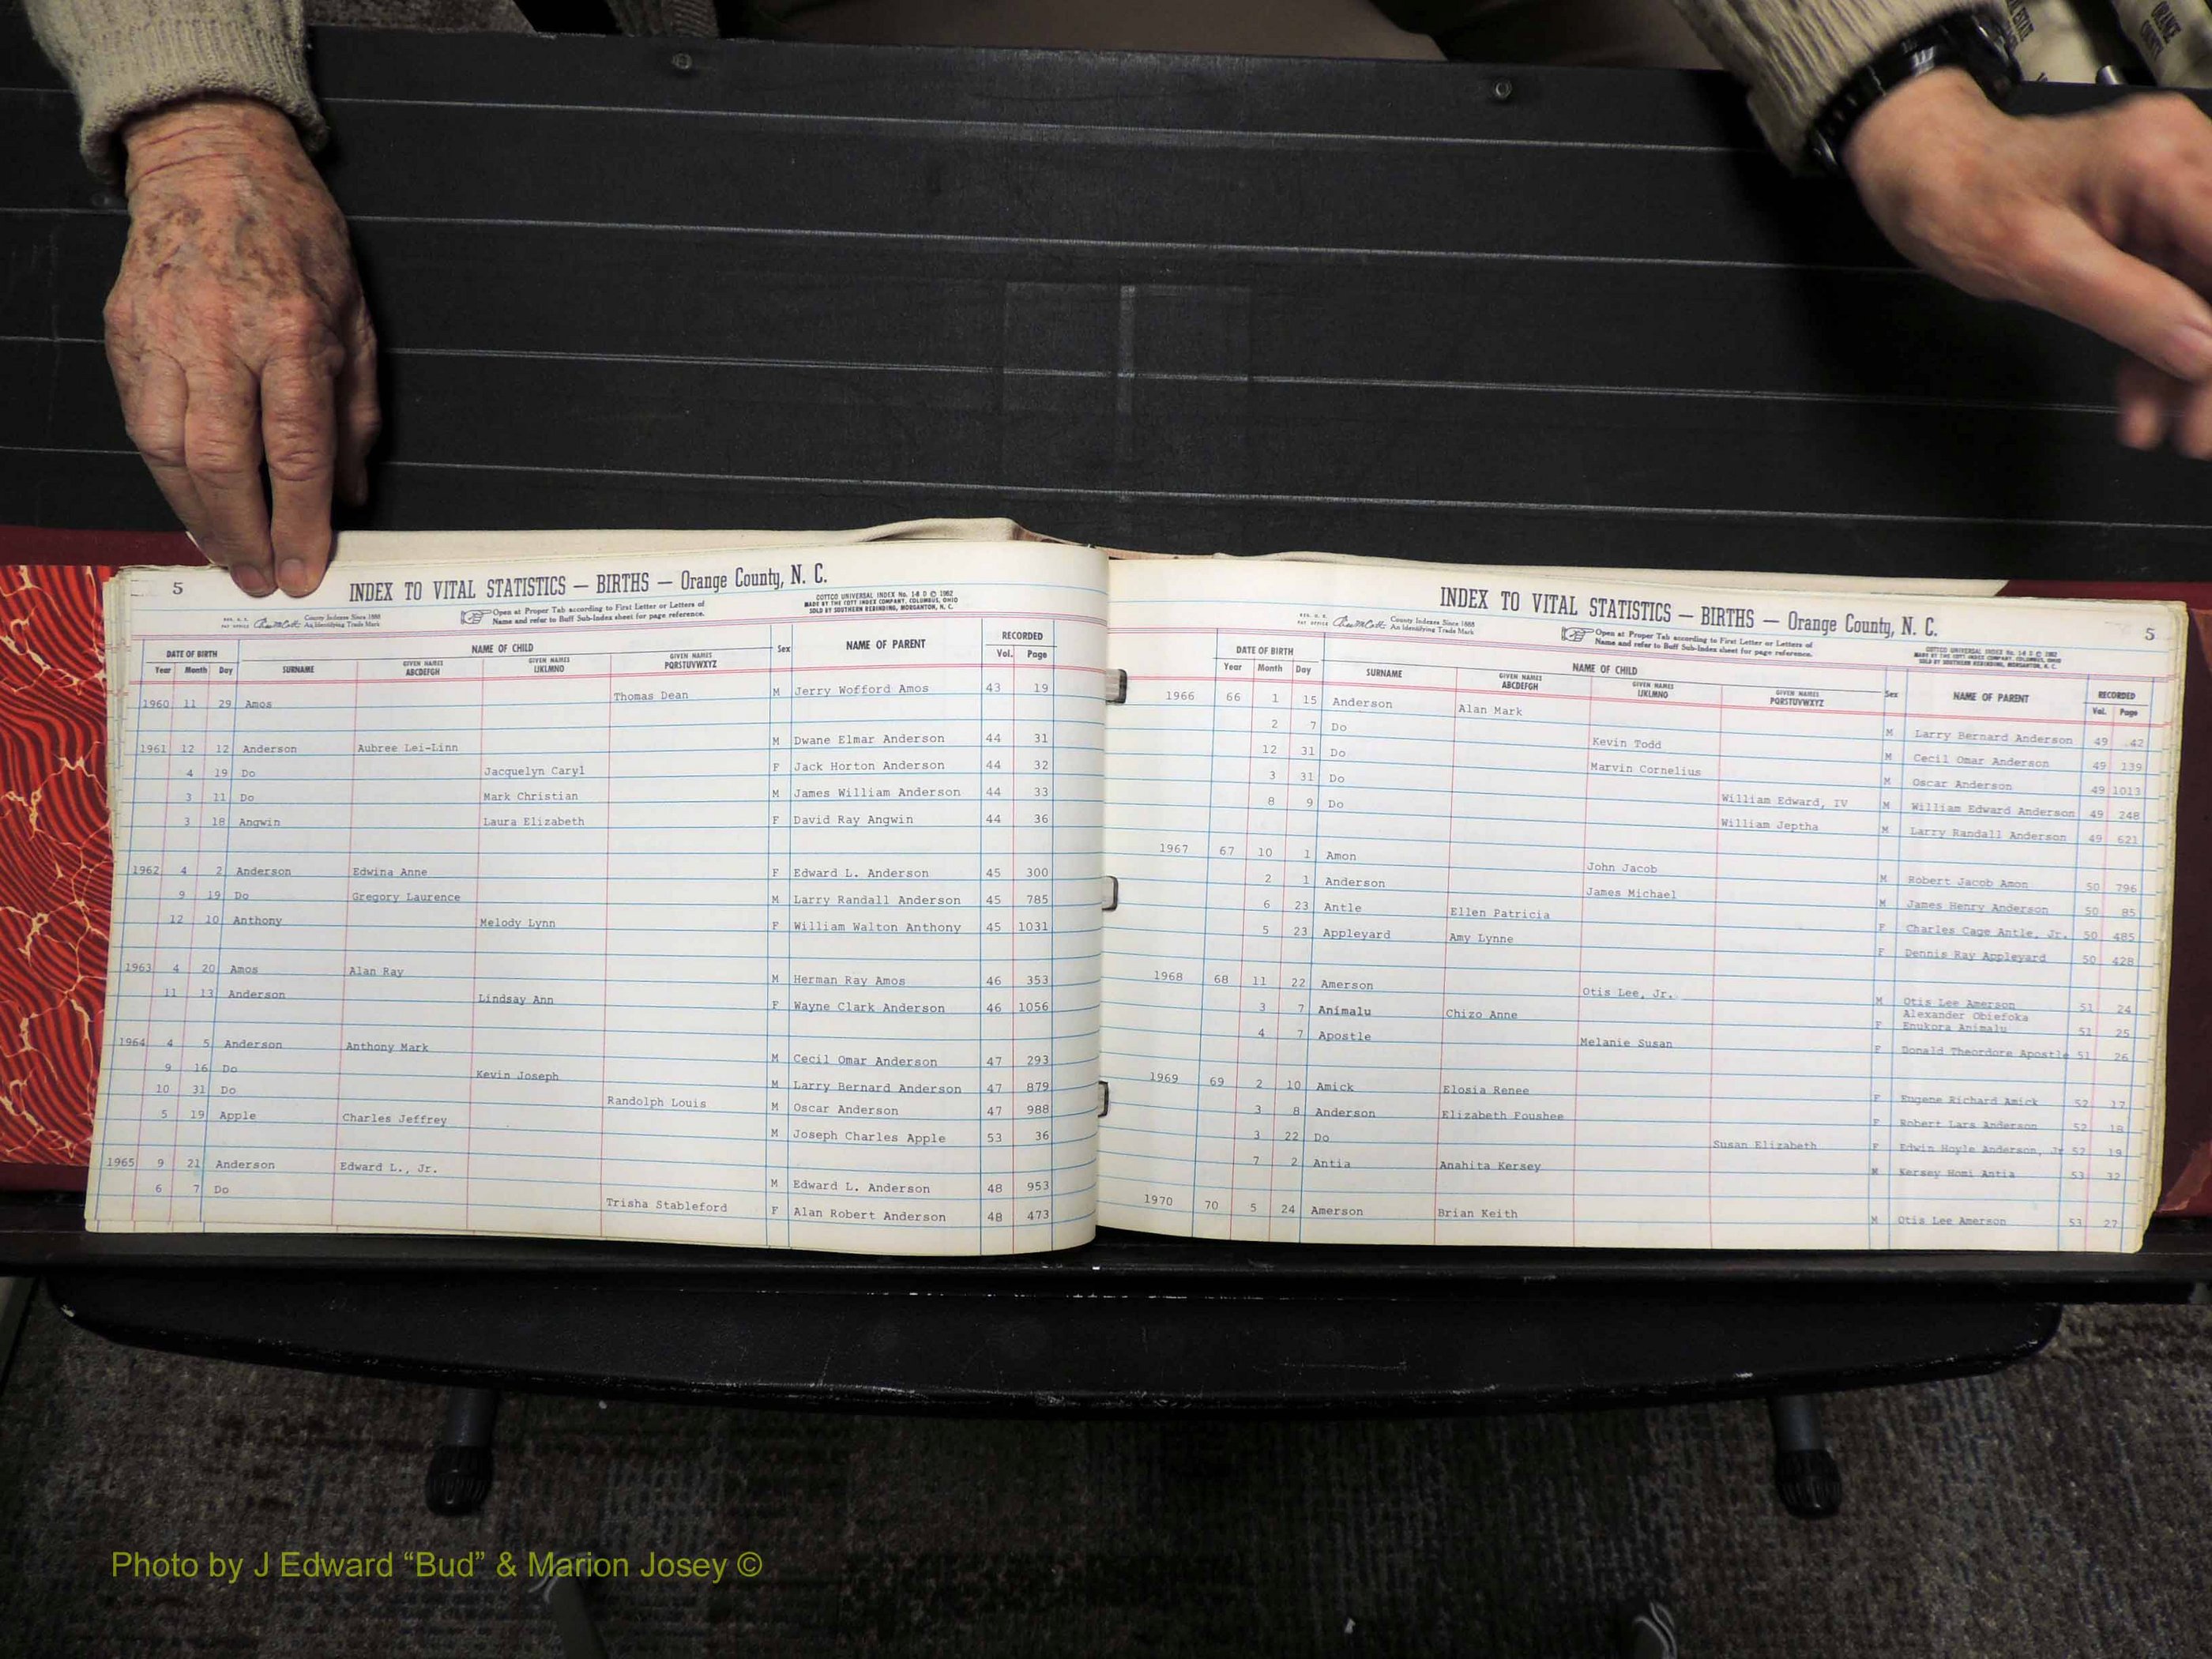 ORANGE
COUNTY
5
INDEX TO VITAL STATISTICS — BIRTHS — Orange County, N. C.
County Indexes Since 1888
An Identifying Trade Mark
Open at Proper Tab according to First Letter or Letters of
Name and refer to Buff Sub-Index sheet for page reference.
COTTCO UNIVERSAL INDEX No. 14 D © 1962
MADE BY THE COTT INDEX COMPANY, COLUMBUS, OHIO
SOLD BY SOUTHERN REBINDING, MORGANTON, N. C.
DATE OF BIRTH NAME OF CHILD Sex NAME OF PARENT RECORDED
Year Month Day SURNAME GIVEN NAMES ABCDEFGH GIVEN NAMES IJKLMNO GIVEN NAMES PQRSTUVWXYZ Vol. Page
1960 11 29 Amos Thomas Dean M Jerry Wofford Amos 43 19
1961 12 12 Anderson Aubree Lei-Linn M Dwane Elmar Anderson 44 31
4 19 Do Jacquelyn Caryl F Jack Horton Anderson 44 32
3 11 Do Mark Christian M James William Anderson 44 33
3 18 Angwin Laura Elizabeth F David Ray Angwin 44 36
1962 4 2 Anderson Edwina Anne F Edward L. Anderson 45 300
9 19 Do Gregory Laurence M Larry Randall Anderson 45 785
12 10 Anthony Melody Lynn F William Walton Anthony 45 1031
1963 4 20 Amos Alan Ray M Herman Ray Amos 46 353
11 13 Anderson Lindsay Ann F Wayne Clark Anderson 46 1056
1964 4 5 Anderson Anthony Mark M Cecil Omar Anderson 47 293
9 16 Do Kevin Joseph M Larry Bernard Anderson 47 879
10 31 Do Randolph Louis M Oscar Anderson 47 988
5 19 Apple Charles Jeffrey M Joseph Charles Apple 53 36
1965 9 21 Anderson Edward L., Jr. M Edward L. Anderson 48 953
6 7 Do Trisha Stableford F Alan Robert Anderson 48 473
INDEX TO VITAL STATISTICS — BIRTHS — Orange County, N. C.
5
County Indexes Since 1888
An Identifying Trade Mark
Open at Proper Tab according to First Letter or Letters of
Name and refer to Buff Sub-Index sheet for page reference.
COTTCO UNIVERSAL INDEX No. 14 D © 1962
MADE BY THE COTT INDEX COMPANY, COLUMBUS, OHIO
SOLD BY SOUTHERN REBINDING, MORGANTON, N. C.
DATE OF BIRTH NAME OF CHILD Sex NAME OF PARENT RECORDED
Year Month Day SURNAME GIVEN NAMES ABCDEFGH GIVEN NAMES IJKLMNO GIVEN NAMES PQRSTUVWXYZ Vol. Page
1966 66 1 15 Anderson Alan Mark M Larry Bernard Anderson 49 42
2 7 Do Kevin Todd M Cecil Omar Anderson 49 139
12 31 Do Marvin Cornelius M Oscar Anderson 49 1013
3 31 Do William Edward, IV M William Edward Anderson 49 248
8 9 Do William Jeptha M Larry Randall Anderson 49 621
1967 67 10 1 Amon John Jacob M Robert Jacob Amon 50 796
2 1 Anderson James Michael M James Henry Anderson 50 85
6 23 Antle Ellen Patricia F Charles Cage Antle, Jr. 50 485
5 23 Appleyard Amy Lynne F Dennis Ray Appleyard 50 428
1968 68 11 22 Amerson Otis Lee, Jr. M Otis Lee Amerson 51 24
Alexander Obiefoka
3 7 Animalu Chizo Anne F Enukora Animalu 51 25
4 7 Apostle Melanie Susan F Donald Theordore Apostle 51 26
1969 69 2 10 Amick Elosia Renee F Eugene Richard Amick 52 17
3 8 Anderson Elizabeth Foushee F Robert Lars Anderson 52 18
3 22 Do Susan Elizabeth F Edwin Hoyle Anderson, Jr 52 19
7 2 Antia Anahita Kersey M Kersey Homi Antia 53 32
1970 70 5 24 Amerson Brian Keith M Otis Lee Amerson 53 27
Photo by J Edward “Bud” & Marion Josey ©